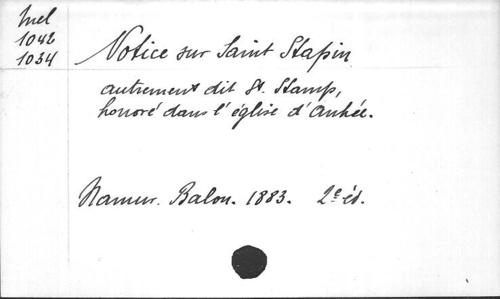 Mel
1042
1034
Notice sur Saint Stapin
autrement dit St. Stamp,
honoré dans l'église d'Anhée.
Namur. Balon. 1883. 2e éd.